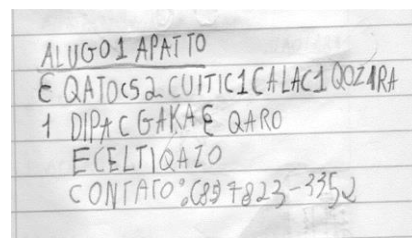 ALUGO1 APATTO
E QATOCS2 CUITIC1 CALAC1 QOZ1RA
1 DIPAC GAKAE QARO
ECELTIQAZO
CONTATO: (85) 7823-3352